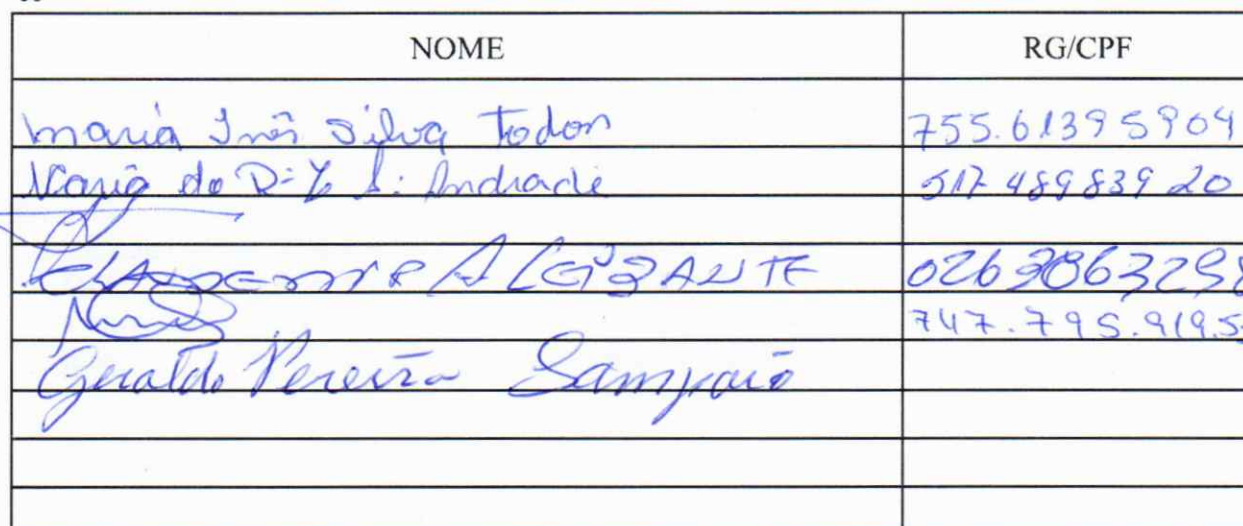 NOME RG/CPF
Maria Inês Silva Todon 755.61395904
Maria do R: S: Andrade 517 489839 20
02630632
747.795.919.5
Geraldo Pereira Sampaio